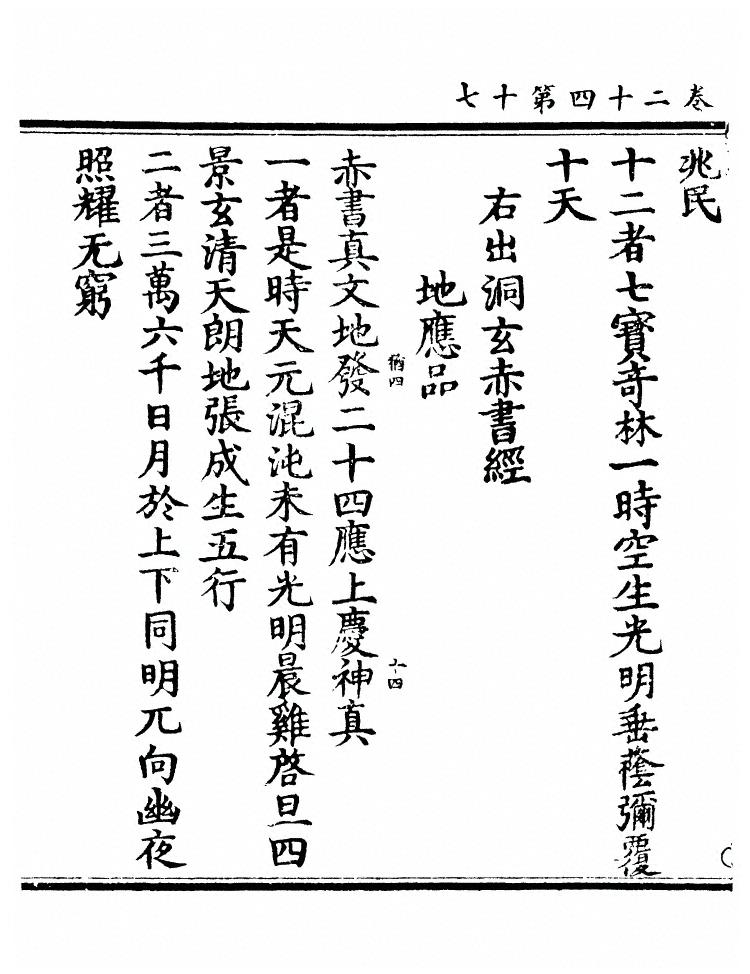 卷二十四第十七
兆民
十二者七寶奇林一時空生光明垂蔭彌覆
十天
右出洞玄赤書經
地應品
猶四
十四
赤書真文地發二十四應上慶神真
一者是時天元混沌未有光明晨雞啓旦四
景玄清天朗地張成生五行
二者三萬六千日月於上下同明兀向幽夜
照耀无窮